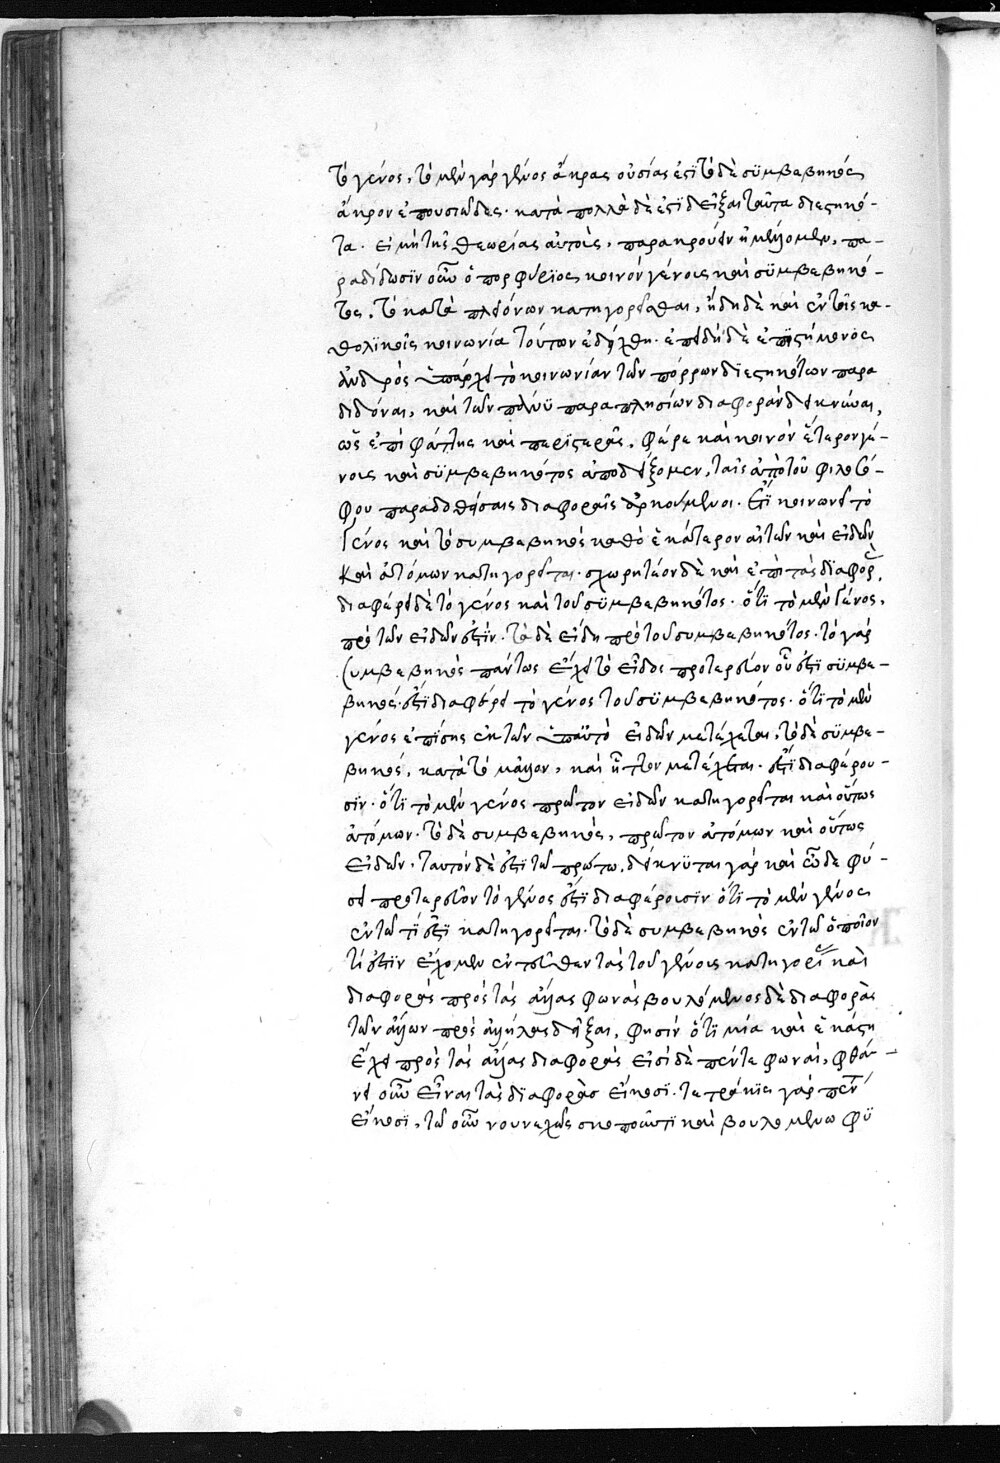 τὸ γένος, τὸ μὲν γὰρ γένος ἄκρας οὐσίας ἐστὶ τὸ δὲ συμβεβηκός
ἄκρον ἐπουσιῶδες. κατὰ πολλὰ δὲ ἐστὶ δεῖξαι ταῦτα διεστηκό-
τα. εἰ μὴ τῆς θεωρίας αὐτοὺς, παρακρούειν ἠμέλλομεν, πα-
ραδίδωσιν οὖν ὁ πορφύριος κοινὸν γένους καὶ συμβεβηκό-
τος, τὸ κατὰ πλειόνων κατηγορεῖσθαι, ἤδη δὲ καὶ ἐν τοῖς κα-
θολικοῖς κοινωνία τούτων ἐδείχθη. ἐπειδὴ δὲ ἐπιστήμονος
ἀνδρὸς ὑπάρχει τὸ κοινωνίαν τῶν πόρρων διεστηκότων παρα
διδόναι, καὶ τῶν πάνυ παραπλησίων διαφορὰν δεικνύναι,
ὡς ἐπὶ φάττης καὶ περιστερᾶς, φέρε καὶ κοινὸν ἕτερον γέ-
νους καὶ συμβεβηκότος ἀποδείξομεν, ταῖς ἀπὸ τοῦ φιλοσό-
φου παραδοθείσαις διαφοραῖς ἀρκούμενοι. ἔτι κοινωνεῖ τὸ
γένος καὶ τὸ συμβεβηκὸς καθὸ ἑκάτερον αὐτῶν καὶ εἰδῶν
καὶ ἀτόμων κατηγορεῖται. χωρητέον δὲ καὶ ἐπὶ τὰς διαφορ
διαφέρει δὲ τὸ γένος καὶ τοῦ συμβεβηκότος. ὅτι τὸ μὲν γένος,
πρὸ τῶν εἰδῶν ἐστίν. τὰ δὲ εἴδη πρὸ τοῦ συμβεβηκότος. τὸ γὰρ
συμβεβηκὸς πάντως ἔχει τὸ εἶδος προτερεῖον οὗ ἐστι συμβε-
βηκός. ἔτι διαφέρει τὸ γένος τοῦ συμβεβηκότος. ὅτι τὸ μὲν
γένος ἐπίσης ἐκ τῶν ὑπαυτὸ εἰδῶν μετέχεται, τὸ δὲ συμβε-
βηκός, κατὰ τὸ μᾶλλον, καὶ ἧττον μετέχεται. ἔτι διαφέρου-
σιν. ὅτι τὸ μὲν γένος πρῶτον εἰδῶν κατηγορεῖται καὶ οὕτως
ἀτόμων. τὸ δὲ συμβεβηκὸς, πρῶτον ἀτόμων καὶ οὕτως
εἰδῶν. ταυτὸν δὲ ἐστὶ τῶ πρώτω, δείκνυται γὰρ καὶ ὧδε φύ-
σει προτερεῖον τὸ γένος ἔτι διαφέρουσιν ὅτι τὸ μὲν γένος
ἐν τῶ τί ἐστι κατηγορεῖται. τὸ δὲ συμβεβηκὸς ἐν τῶ ὁποῖον
τί ἐστιν ἔχομεν ἐντεῦθεν τὰς τοῦ γένους κατηγορί καὶ
διαφορὰς πρὸς τὰς ἄλλας φωνὰς βουλόμενος δὲ διαφορὰς
τῶν ἄλλων πρὸς ἀλλήλας δεῖξαι, φησὶν ὅτι μία καὶ ἑκάστη
ἔχει πρὸς τὰς ἄλλας διαφορὰς εἰσὶ δὲ πέντε φωναὶ, φθά-
νει οὖν εἶναι τὰς διαφορὰσ εἴκοσι. τετράκις γὰρ πεν
εἴκοσι, τῶ οὖν νουνεχῶς σκοποῦντι καὶ βουλομένω φυ